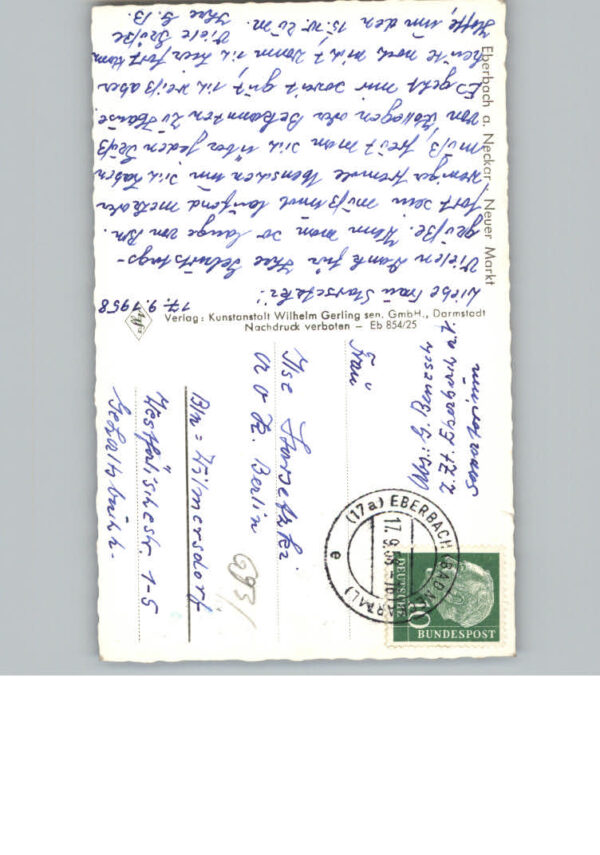 17.9.1958
Liebe Frau Starsetzki!
Vielen Dank für Ihre Geburtstags-
grüße. Wenn man so lange von Bln.
fort sein muß und laufend mehr oder
weniger fremde Menschen um sich haben
muß, freut man sich über jeden Gruß
von Kollegen oder Bekannten zu Hause.
Es geht mir soweit gut, ich weiß aber
heute noch nicht wann ich hier fort kom
Hoffe, um den 15.10. rum.
Viele Grüße
Ihre G. B.
Eberbach a. Neckar, Neuer Markt
Verlag: Kunstanstalt Wilhelm Gerling sen. GmbH., Darmstadt
Nachdruck verboten – Eb 854/25
Abs.: G.
z. Zt. Eberbach
Frau
Ilse Starsetzki
Berlin
Bln.-Wilmersdorf
Westfälischestr. 1-5
Gehaltsbuchh.
693/
(17a) EBERBACH (BADEN)
17.9.58
e
10
DEUTSCHE
BUNDESPOST